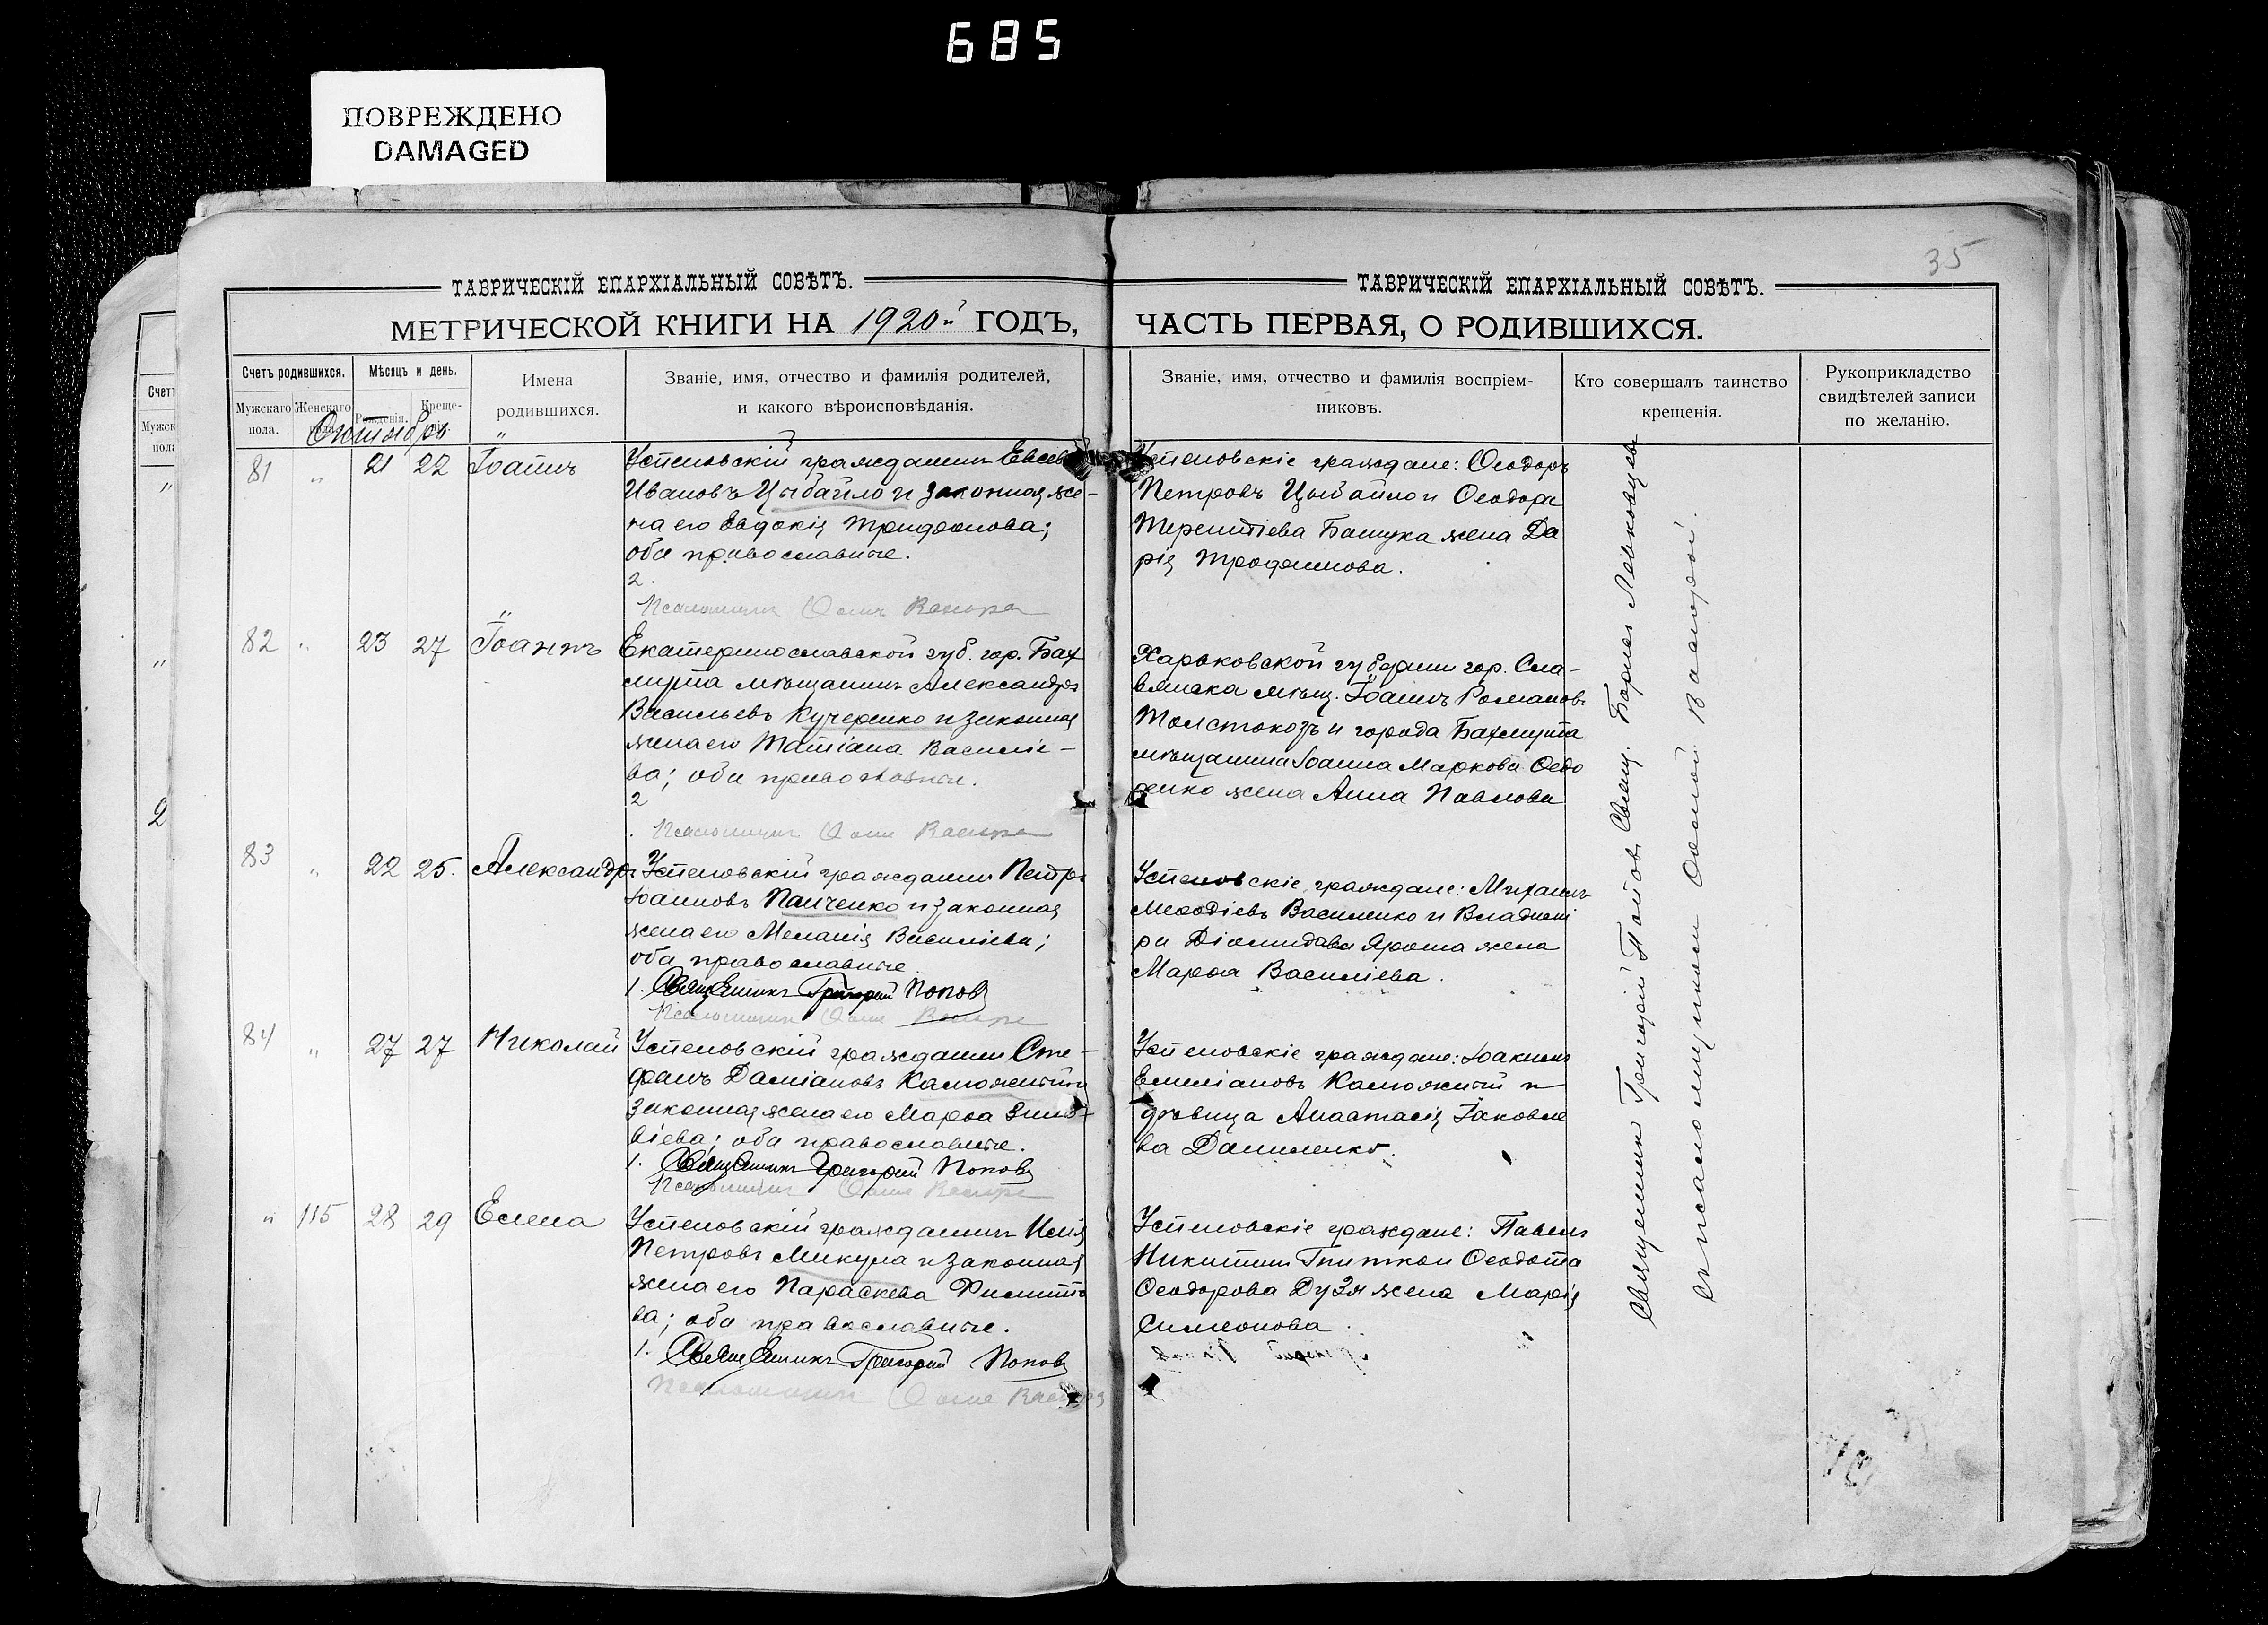 685
ПОВРЕЖДЕНО
DAMAGED
35
ТАВРИЧЕСКІЙ ЕПАРХІАЛЬНЫЙ СОВѢТЪ.
МЕТРИЧЕСКОЙ КНИГИ НА 1920й ГОДЪ,
Счетъ родившихся.
Мужскаго пола.
Женскаго пола.
Мѣсяцъ и день.
Рожденія.
Креще-
нія.
Имена
родившихся.
Званіе, имя, отчество и фамилія родителей,
и какого вѣроисповѣданія.
ТАВРИЧЕСКІЙ ЕПАРХІАЛЬНЫЙ СОВѢТЪ.
ЧАСТЬ ПЕРВАЯ, О РОДИВШИХСЯ.
Званіе, имя, отчество и фамилія воспріем-
никовъ.
Кто совершалъ таинство
крещенія.
Рукоприкладство
свидѣтелей записи
по желанію.
Октябрь
81 " 21 22 Іоаннъ
Успеновскій гражданинъ Евсев
Ивановъ Цыбайло и законная же-
на его Евдокія
оба православные.
2.
Псаломщикъ
Успеновскіе граждане: Ѳеодоръ
Петровъ Цыбайло и Ѳеодора
Терентіева жена Да
рія
82 " 23 27 Іоаннъ
Екатеринославской губ. гор. Бах
мута мѣщанинъ Александръ
Васильевъ Кучеренко и законная
жена его Татіана Василіе-
ва; оба православные.
2
Псаломщикъ
Харьковской губерніи гор. Сла-
вянска мѣщ. Іоаннъ Романовъ
Толстокозъ и города Бахмута
мѣщанина Іоанна Маркова Ѳедо
ренко жена Анна Павлова
83 " 22 25. Александръ
Успеновскій гражданинъ Петръ
Іоанновъ Панченко и законная
жена его Меланія Василіева;
оба православные.
1. Священникъ Григорий Попов
Псаломщикъ
Успеновскіе граждане: Михаилъ
Меѳодіевъ Василенко и Владими
ра Яроша жена
Марѳа Василіева.
84 " 27 27 Николай
Успеновскій гражданинъ Сте-
фанъ Даміановъ
законная жена его Марѳа Зино-
віева; оба православные.
1. Священникъ Григорий Попов
Псаломщикъ
Успеновскіе граждане: Іоакимъ
Емиліановъ и
дѣвица Анастасія Іаковле
ва Даниленко.
" 115 28 29 Елена
Успеновскій гражданинъ Илія
Петровъ Микула и законная
жена его Параскева Филиппо
ва; оба православные.
1. Священникъ Григорий Попов
Псаломщикъ
Успеновскіе граждане: Павелъ
Никитинъ и Ѳеодота
Ѳеодорова жена Марія
Симеонова.
Священникъ Григорій Поповъ Свящ.
съ псаломщикомъ